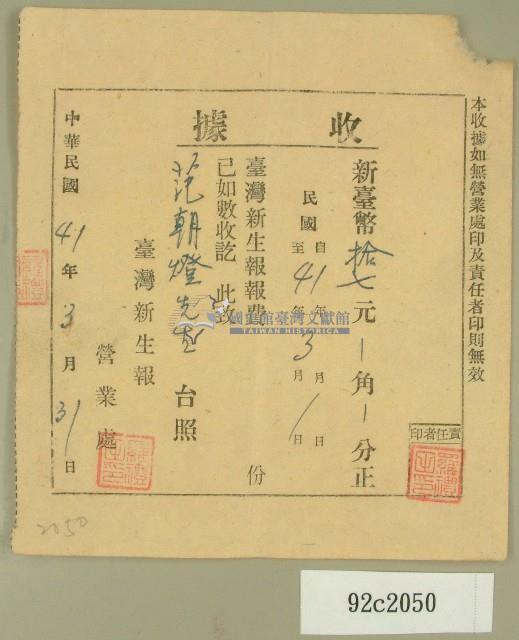 本收據如無營業處印及責任者印則無效
收據
新臺幣拾七元 角 分正
民國自41年3月1日
至 年 月 日
臺灣新生報報費 份
已如數收訖 此致
范朝燈先生 台照
臺灣新生報
營業處
中華民國41年3月31日
責任者印
國史館臺灣文獻館
TAIWAN HISTORICA
2050
92c2050